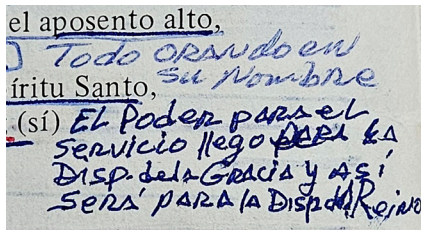 el aposento alto,
Todo ORANdo eN
Su Nombre
íritu Santo,
(sí) El Poder para el
servicio llego para la
Disp. de la Gracia y así
será para la Disp del Reino